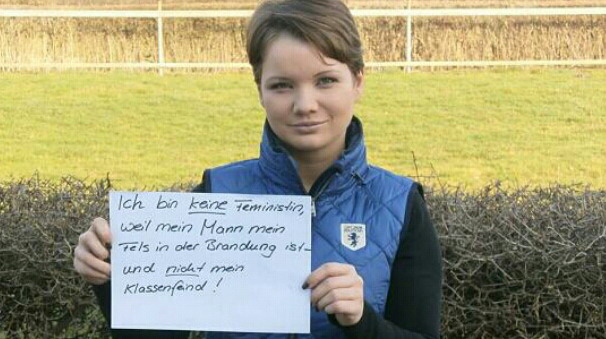 Ich bin keine Feministin,
weil mein Mann mein
Fels in der Brandung ist -
und nicht mein
Klassenfeind!